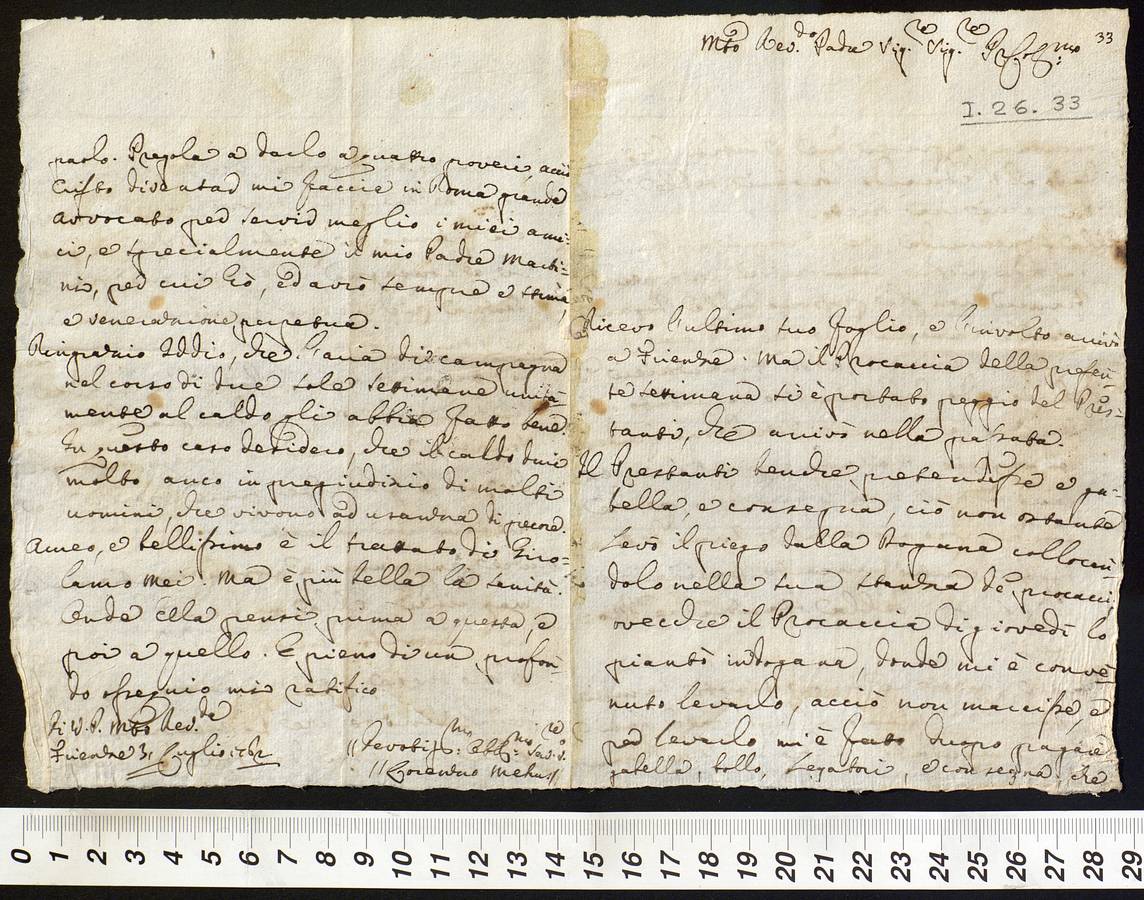 Mto Rev.do Padre Sig.re Sig.re P̃rõn Col.mo
33
I. 26. 33
Ricevo l'ultimo suo foglio, e l'involto arrivò
a Firenze. Ma il Procaccia della presen-
te settimana si è portato peggio del Pres-
tanti, che arrivò nella passata.
Il Prestanti benchè pretendesse e ga-
bella, e consegna, ciò non ostante
levò il piego dalla Dogana collocan-
dolo nella sua stanza de' procacci
ovecchè il Procaccia di giovedì lo
piantò in dogana, donde mi è conve-
nuto levarlo, acciò non marcisse, e
per levarlo mi è fatto duopo pagare
gabella, bollo, legatori, e consegna, che
paolo. Pregola a darlo a quattro poveri, acciò
Cristo diventar mi faccia in Roma grande
avvocato per servir meglio i miei ami-
ci, e specialmente il mio Padre Marti-
ni, per cui hò, ed avrò sempre e stima,
e venerazione perpetua.
Ringrazio Iddio, che l'aria di campagna
nel corso di due sole settimane unita-
mente al caldo gli abbia fatto bene.
In questo caso desidero, che il caldo duri
molto anco in pregiudizio di molti
uomini, che vivono ad usanza di pecore.
Aureo, e bellissimo è il trattato di Giro-
lamo Mei. Ma è più bella la sanità.
Onde ella pensi prima a questa, e
poi a quello. E pieno di un profon-
do ossequio mi ratifico
Di V. P. Mto Rev.da
Firenze 31 Luglio 1762
Devotis.mo: Obb.mo: Serv.re
Lorenzo Mehus